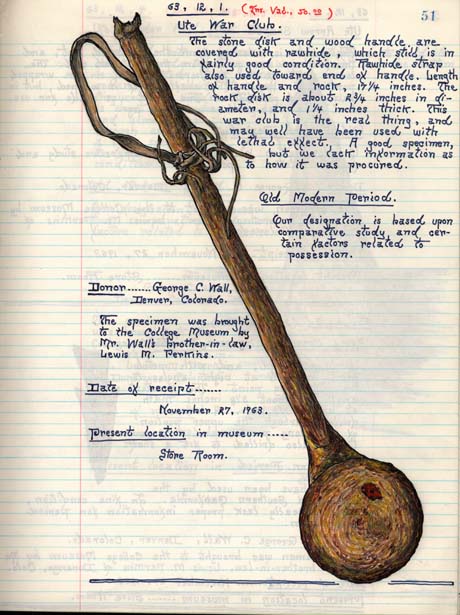 51
63, 12, 1.
Ute War Club.
The stone disk and wood handle are
covered with rawhide, which still is in
fairly good condition. Rawhide strap
also used toward end of handle. Length
of handle and rock, 17¼ inches. The
rock disk is about 2¾ inches in di-
ameter, and 1¼ inches thick. This
war club is the real thing, and
may well have been used with
lethal effect. A good specimen,
but we lack information as
to how it was procured.
Old Modern Period.
Our designation is based upon
comparative study, and cer-
tain factors related to
possession.
Donor ...... George C. Wall,
Denver, Colorado.
The specimen was brought
to the College Museum by
Mr. Wall's brother-in-law,
Lewis M. Perkins.
Date of receipt .......
November 27, 1963.
Present location in museum .....
Store Room.